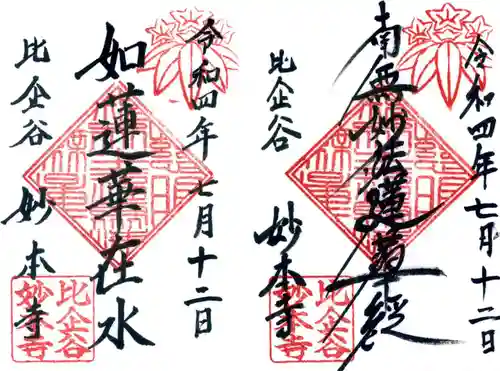 令和四年七月十二日
南無妙法蓮華経
比企谷
妙本寺
比企谷
妙本寺
令和四年七月十二日
如蓮華在水
比企谷
妙本寺
比企谷
妙本寺